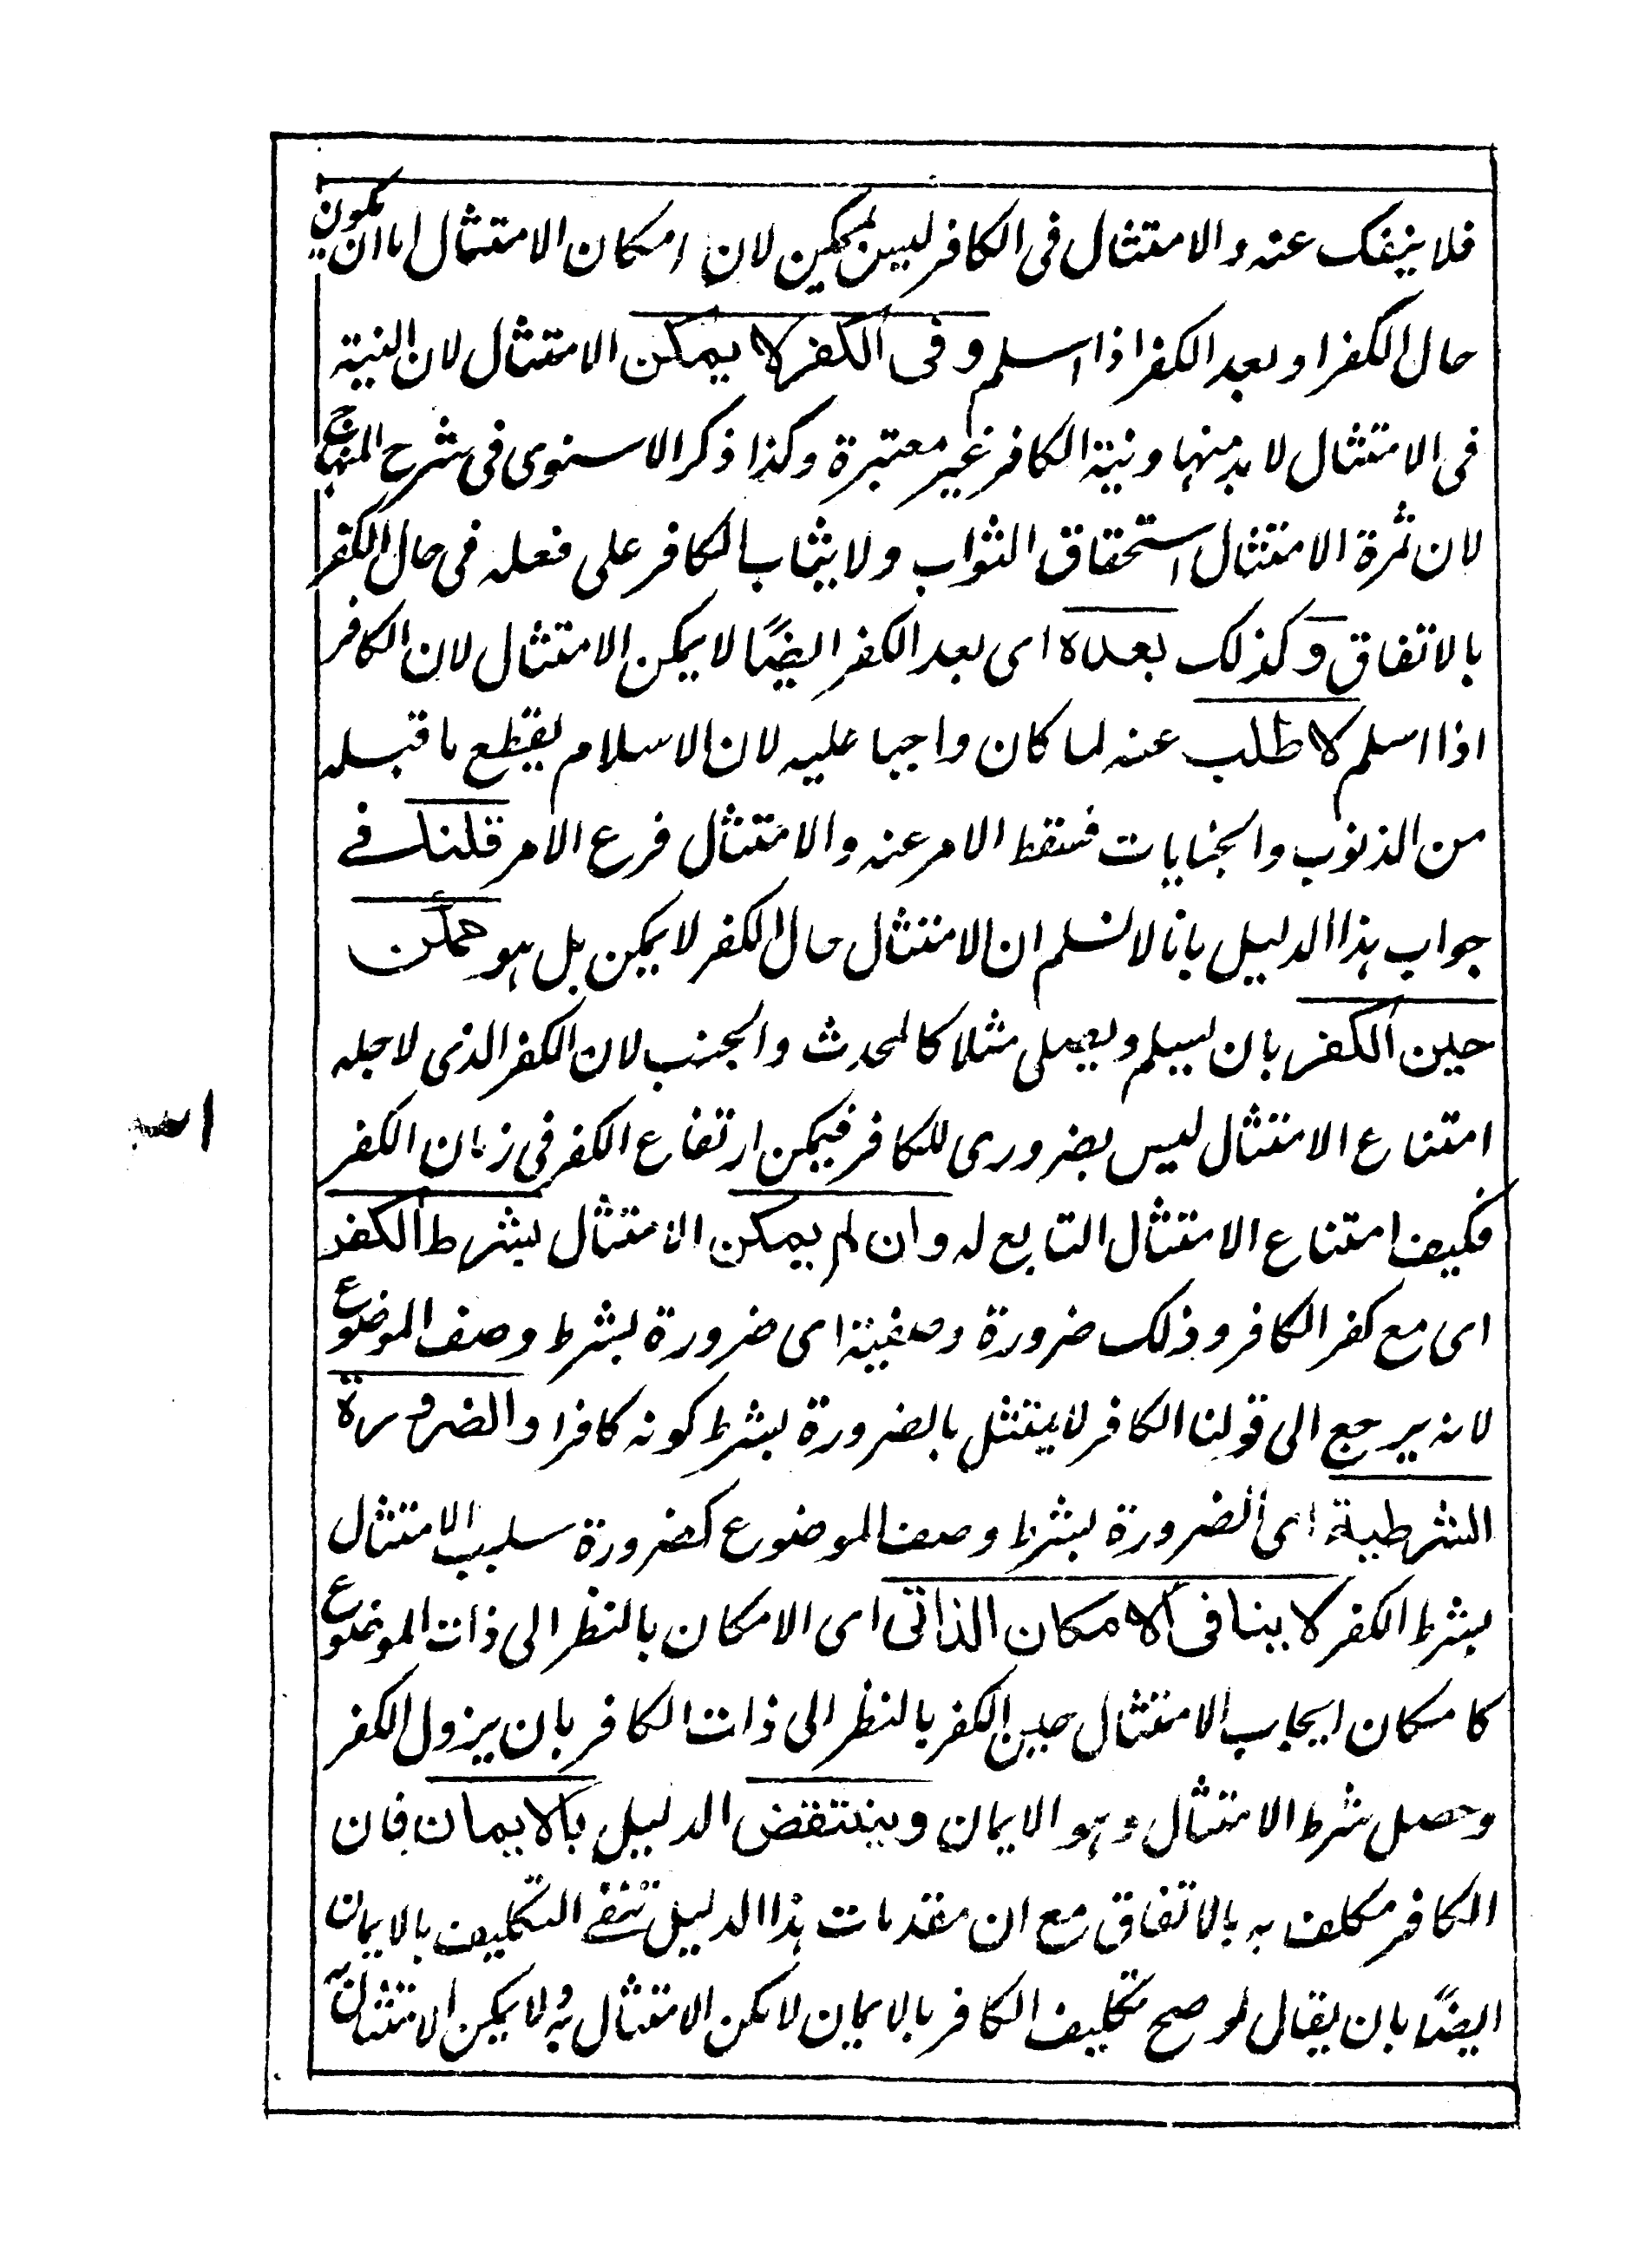 فلا ينفك عنه والامتثال في الكافر ليس بممكن لان امكان الامتثال اما ان يكون
حال الكفر او بعد الكفر اذا اسلم وفى الكفر لا يمكن الامتثال لان النية
في الامتثال لا بد منها ونية الكافر غير معتبرة وكذا ذكر الاسنوى في شرح المنهاج
لان ثمرة الامتثال استحقاق الثواب ولا يثاب الكافر على فعله في حال الكفر
بالاتفاق وكذلك بعده اى بعد الكفر ايضًا لا يمكن الامتثال لان الكافر
اذا اسلم لا طلب عنه لما كان واجبا عليه لان الاسلام يقطع ما قبله
من الذنوب والجنايات فسقط الامر عنه والامتثال فرع الامر قلنا في
جواب هذا الدليل بانا لا نسلم ان الامتثال حال الكفر لا يمكن بل هو ممكن
حين الكفر بان يسلم ويصلى مثلا كالمحدث والجنب لان الكفر الذى لاجله
امتناع الامتثال ليس بضرورى للكافر فيمكن ارتفاع الكفر في زمان الكفر
فكيف امتناع الامتثال التابع له وان لم يمكن الامتثال بشرط الكفر
اى مع كفر الكافر وذلك ضرورة وصفية اى ضرورة بشرط وصف الموضوع
لانه يرجع الى قولنا الكافر لا يمتثل بالضرورة بشرط كونه كافرا والضرورة
الشرطية اى الضرورة بشرط وصف الموضوع كضرورة سلب الامتثال
بشرط الكفر لا ينافى الامكان الذاتى اى الامكان بالنظر الى ذات الموضوع
كامكان ايجاب الامتثال حين الكفر بالنظر الى ذات الكافر بان يزول الكفر
وحصل شرط الامتثال وهو الايمان وينتقض الدليل بالايمان فان
الكافر مكلف به بالاتفاق مع ان مقدمات هذا الدليل تنفي التكليف بالايمان
ايضًا بان يقال لو صح تكليف الكافر بالايمان لامكن الامتثال به ولا يمكن الامتثال به